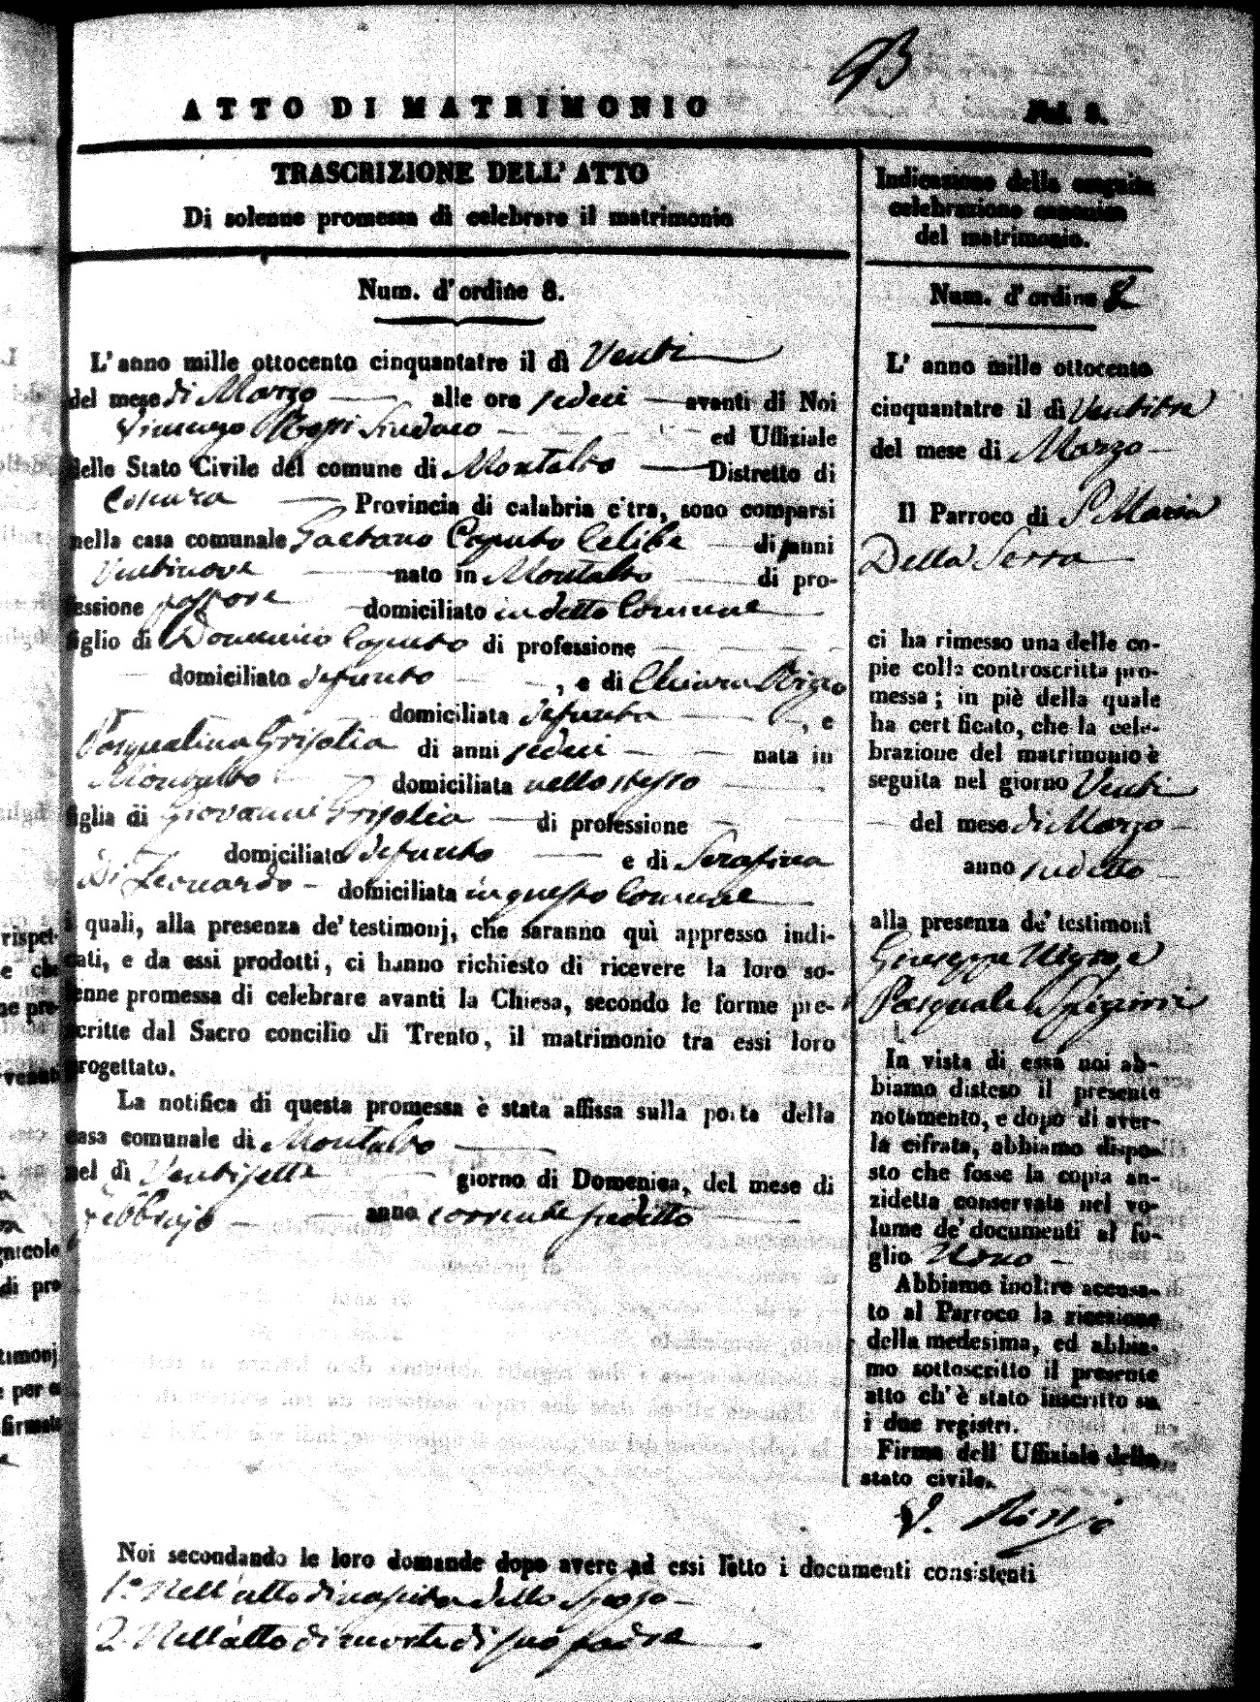 93
ATTO DI MATRIMONIO
Fol. 8.
TRASCRIZIONE DELL' ATTO
Di solenne promessa di celebrare il matrimonio
Num. d'ordine 8.
L' anno mille ottocento cinquantatre il dì Venti
del mese di Marzo alle ore sedeci avanti di Noi
Sindaco ed Uffiziale
dello Stato Civile del comune di Montalto Distretto di
Cosenza Provincia di calabria citra, sono comparsi
nella casa comunale Gaetano Caputo Celibe di anni
Ventinove nato in Montalto di pro-
fessione pastore domiciliato in detto Comune
figlio di Domenico Caputo di professione
domiciliato defunto , e di Chiara Rizzo
domiciliata defunta , e
Pasqualina Grisolia di anni sedeci nata in
Montalto domiciliata nello stesso
figlia di Giovanni Grisolia di professione
domiciliato defunto e di Serafina
Di Leonardo domiciliata in questo Comune
i quali, alla presenza de' testimonj, che saranno quì appresso indi-
cati, e da essi prodotti, ci hanno richiesto di ricevere la loro so-
lenne promessa di celebrare avanti la Chiesa, secondo le forme pre-
scritte dal Sacro concilio di Trento, il matrimonio tra essi loro
progettato.
La notifica di questa promessa è stata affissa sulla porta della
casa comunale di Montalto
nel dì Ventisette giorno di Domenica, del mese di
Febbrajo anno corrente sudetto
Indicazione della seguita
celebrazione canonica
del matrimonio.
Num. d'ordine 8
L' anno mille ottocento
cinquantatre il dì Ventitre
del mese di Marzo
Il Parroco di S Maria
Della Serra
ci ha rimesso una delle co-
pie colla controscritta pro-
messa; in piè della quale
ha certificato, che la cele-
brazione del matrimonio è
seguita nel giorno Venti
del mese di Marzo
anno sudetto
alla presenza de' testimoni
Giuseppe
Pasquale
In vista di essa noi ab-
biamo disteso il presente
notamento, e dopo di aver-
la cifrata, abbiamo dispo-
sto che fosse la copia an-
zidetta conservata nel vo-
lume de' documenti al fo-
glio Nono
Abbiamo inoltre accusa-
to al Parroco la ricezione
della medesima, ed abbia-
mo sottoscritto il presente
atto ch' è stato inscritto su
i due registri.
Firma dell Uffiziale dello
stato civile.
Noi secondando le loro domande dopo avere ad essi letto i documenti consistenti
1.º Nell'atto di nascita dello Sposo
2. Nell'atto di morte di suo padre